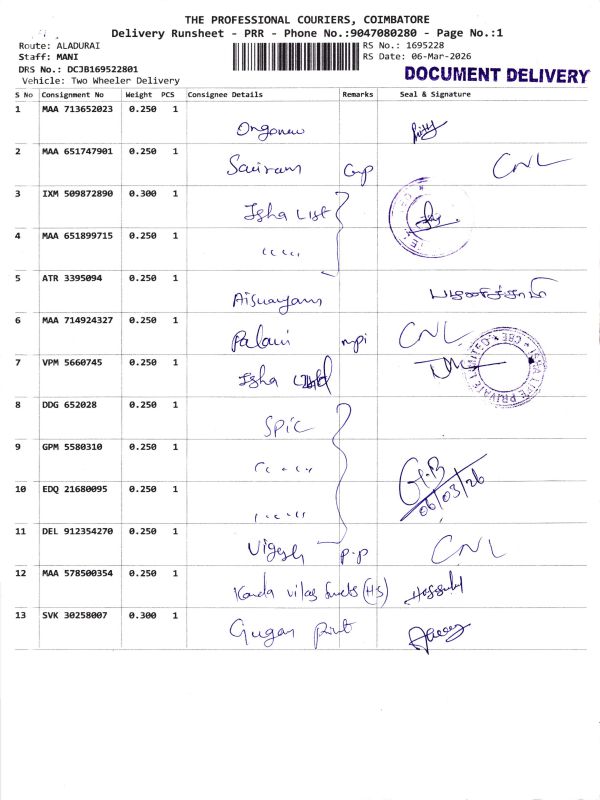 THE PROFESSIONAL COURIERS, COIMBATORE
Delivery Runsheet - PRR - Phone No.:9047080280 - Page No.:1
Route: ALADURAI
RS No.: 1695228
Staff: MANI
RS Date: 06-Mar-2026
DRS No.: DCJB169522801
DOCUMENT DELIVERY
Vehicle: Two Wheeler Delivery
S No Consignment No Weight PCS Consignee Details Remarks Seal & Signature
1 MAA 713652023 0.250 1
2 MAA 651747901 0.250 1 Sairam CNL
3 IXM 509872890 0.300 1 Isha List
4 MAA 651899715 0.250 1 " " " "
5 ATR 3395094 0.250 1
6 MAA 714924327 0.250 1 Palani CNL
7 VPM 5660745 0.250 1 Isha
ISHA LIFE PRIVATE LIMITED ★ CBE ★
8 DDG 652028 0.250 1 SPIC
9 GPM 5580310 0.250 1 " " " "
G.B
06/03/26
10 EDQ 21680095 0.250 1 " " " "
11 DEL 912354270 0.250 1 Vigesh P.P CNL
12 MAA 578500354 0.250 1 Kanda vilas (HS)
13 SVK 30258007 0.300 1 Gugan Print